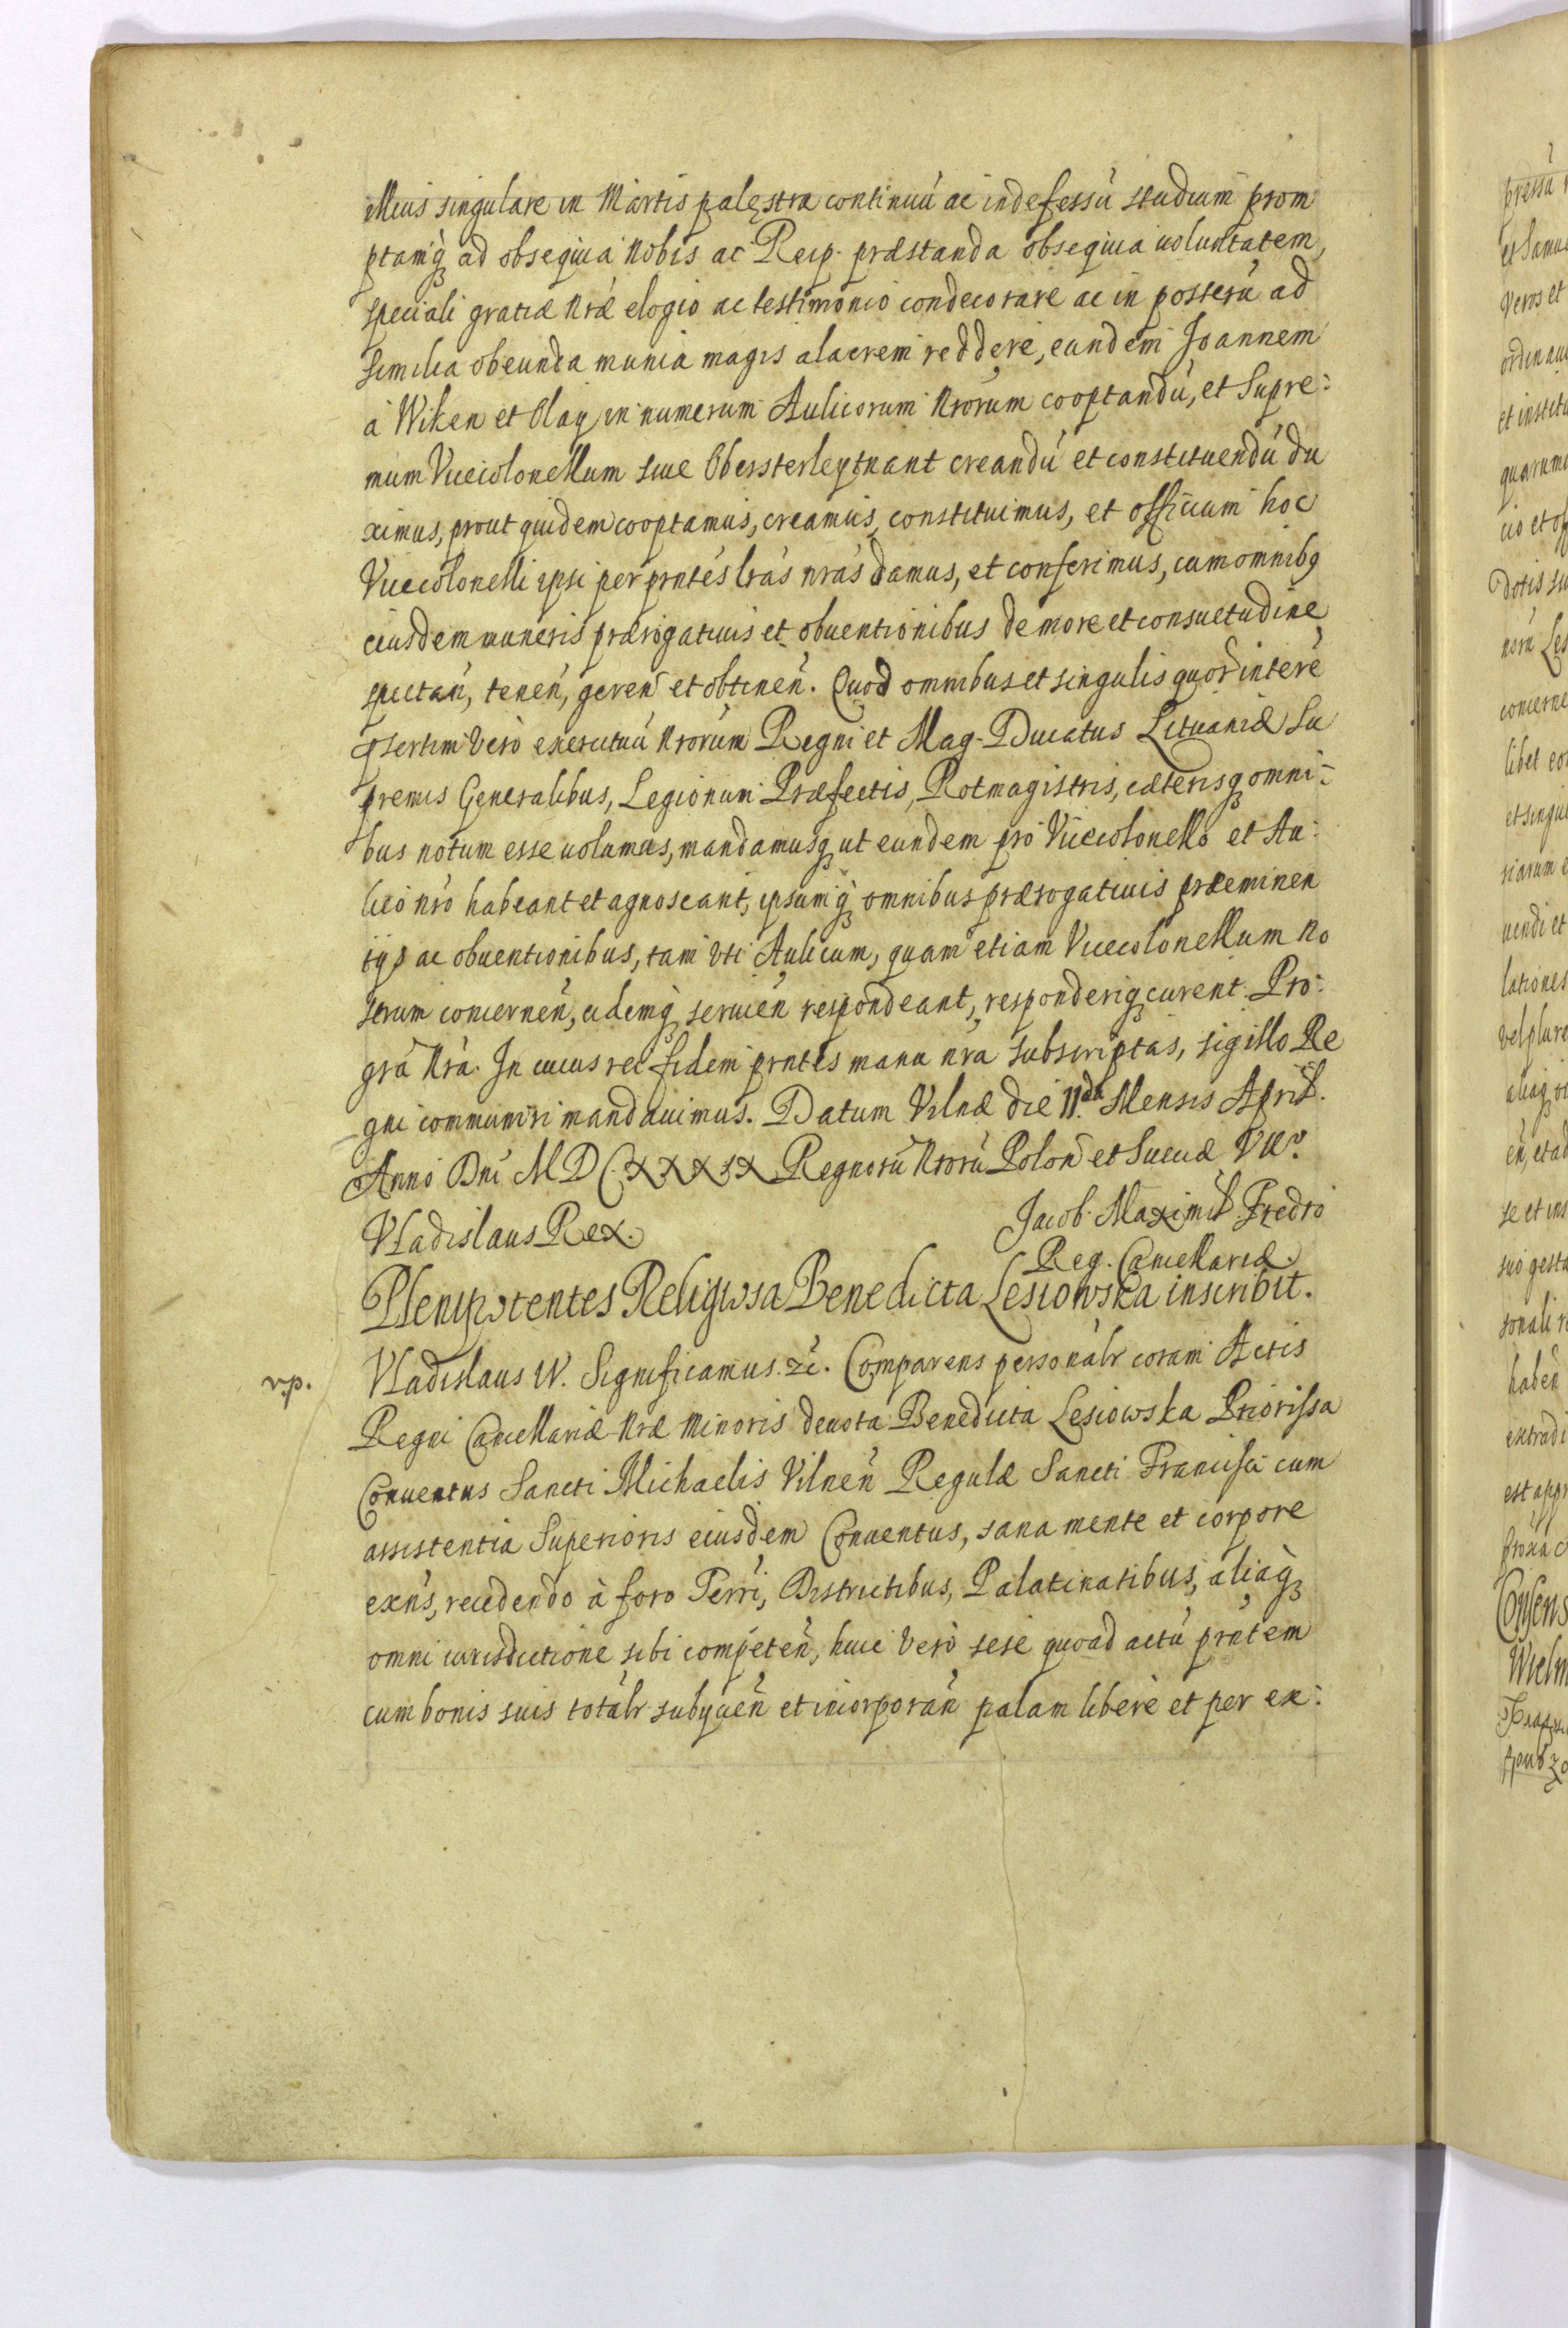 illius singulare in Martis palęstra continuú ac indefessú studium prom
ptamq́ꝫ ad obsequia Nobis ac Reip. præstanda obsequia uoluntatem,
speciali gratiæ Nræ elogio ac testimonio condecorare ac in posterú ad
similia obeunda munia magis alacrem reddere, eundem Joannem
à Wiken et Olay in numerum Aulicorum Nrorum cooptandú, et Supre:
mum Vicecolonellum siue Obersterleytnant creandú et constituendú du
ximus, prout quidem cooptamus, creamus, constituimus, et officium hoc
Vicecolonelli ipsi per prntes lras nras damus, et conferimus, cum omnibꝯ
eiusdem muneris prærogatiuis et obuentionibus de more et consuetudine
spectań, teneń, gereń et obtineń. Quod omnibus et singulis quor interẽ
psertim verò exercituú Nrorum Regni et Mag. Ducatus Lituaniæ Su
premis Generalibus, Legionum Præfectis, Rotmagistris, cæterisqꝫ omni:
bus notum esse uolumus, mandamusqꝫ ut eundem pro Vicecolonello et Au:
lico nro habeant et agnoscant, ipsumq́ꝫ omnibus prærogatiuis præeminen
tijs ac obuentionibus, tam vti Aulicum, quam etiam Vicecolonellum No
strum concerneń, eidemq́ꝫ seruień respondeant, responderiqꝫ curent. Pro:
gra Nra. In cuius rei fidem prntes manu nra subscriptas, sigillo Re
gni communiri mandauimus. Datum Vilnæ die 11da Mensis April.
Anno Dni M D C. XXXIX Regnorú Nrorú Polon et Sueciæ VII.
Vladislaus Rex.
Jacob. Maximil. Fredro
Reg. Cancellariæ.
Plenipotentes Religiosa Benedicta Lesiowska inscribit.
rp.
Vladislaus IV. Significamus. &c. Comparens personalr coram Actis
Regni Cancellariæ Nræ Minoris deuota Benedicta Lesiowska Priorissa
Conuentus Sancti Michaelis Vilneń Regulæ Sancti Francisci cum
assistentia Superioris eiusdem Conuentus, sana mente et corpore
exńs, recedendo à foro Terri, Districtibus, Palatinatibus, aliaq́ꝫ
omni iurisdictione sibi competeń, huic verò sese quoad actú prntem
cum bonis suis totalr subyciẽn et incorporań palam liberè et per ex: